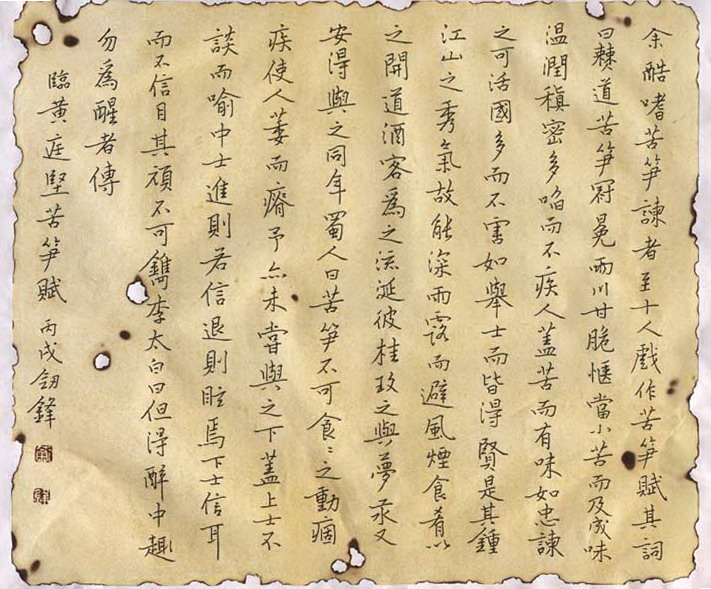 余酷嗜苦笋諫者至十人戲作苦笋賦其詞
曰棘道苦笋冠冕兩川甘脆愜當小苦而及成味
温潤稹密多啗而不疾人蓋苦而有味如忠諫
之可活國多而不害如舉士而皆得賢是其鍾
江山之秀氣故能深雨露而避風煙食肴以
之開道酒客爲之流涎彼桂玫之與夢汞又
安得與之同年蜀人曰苦笋不可食〻之動痼
疾使人萎而瘠予亦未嘗與之下蓋上士不
談而喻中士進則若信退則眩焉下士信耳
而不信目其頑不可鐫李太白曰但得醉中趣
勿爲醒者傳
臨黃庭堅苦笋賦 丙戌 鋒